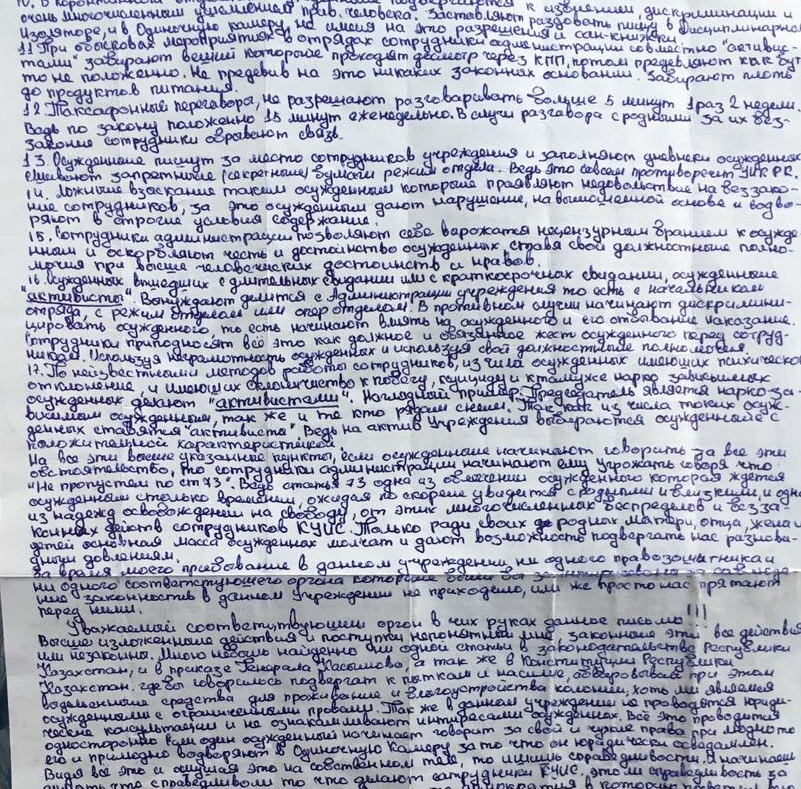 очень многочисленным ущемлением прав. человека. Заставляют раздовать пищу в Дисциплинарном
Изоляторе, и в Одиночную камеру, не имея на это разрешения и сан-книжки.
11. При обысковая мероприятиях в отрядах сотрудники администрации совместно "активис-
тами" забирают вещий которые проходят досмотр через КПП, потом предевляют как бут
то не положенно. Не предевив на это никаких законных основании. Забирают плоть
до продуктов питания.
12. Таксафонный переговоры, не разрешают разговаривать больше 5 минут 1 раз 2 недели.
Ведь по закону положенно 15 минут еженедельно. В случи разгавора с родными за их без-
законие сотрудники обрывают связь.
13. Осужденные пишут за место сотрудников учреждения и заполняют дневнеки осужденных
запретные (секретные) бумаги режим отдела. Ведь это совсем противоречит УИК РК.
14. Ложные взыскание таким осужденным которые праявляют недовольствие на беззако-
ние сотрудников, за это осужденным дают нарушение, на вымышленной основе и водво-
ряют в строгие условия содержание.
15. Сотрудники администрации позволяют себе варожатся нецензурным бранием к осужде-
нным и оскорбляют честь и достойнство осужденных, ставя свой должностные полно-
мочия при высше человеческих достоинств и нравов.
16. Осужденных, вышедших с длительных свидании или с краткосрочных свидании, осужденные
"активисты". Вынуждают делится с Администрации учреждения то есть с начальникам
отряда, с режим отделам или опер отделам. В противном случии начинают дискримини-
цировать осужденного то есть начинают влиять на осужденного и его отбование наказание.
Сотрудники приподносят всё это как должное и обязанное жест осужденного перед сотруд-
никам. Используя неграмотность осужденных и используя свой должностные полномочия
17. По неизвестными методов работы сотрудников, из числа осужденных имеющих психическое
отклонение, и имеющих склоничиство к побегу, суициду и к тамуже нарко зависимых
осужденных делают "активистами". Наглядный пример: Председатель является нарко-за-
висимым осужденным, так же и те кто рядам сними. Так как из числа таких осуж-
денных ставятся "активиста" Ведь на актив учреждения выбираются осужденные с
положительной характеристикой.
На все эти выше указанные пункты, если осужденные начинают говорить за все эти
обстоятельство, то сотрудники администрации начинают ему угрожать говоря что
"Не пропустем по ст 73". Ведь статья 73 одна из облегчении осужденного которая ждется
осужденным столько времени, ожидая по скорее увидется с родными и близкими, и одна
из надежд освобождении на свободу, от этих многочисленных беспределов и безза-
конных действ сотрудников КУИС. Только ради своих родных матери, отца, жены и
детей основная масса осужденных молчат и дают возможность подвергать нас разнова-
дным довлениям.
За время моего прибывание в данном учреждении ни одного правозащитника и
ни одного соответствующего органа которые были бы
ние законностив в данном учреждении не приходило, или же просто нас прятают
перед ними.
Уважаемый соответствующий орган в чих руках данное письмо!!!
Высше изложенные действия и поступки непонятный мне, законные эти все действия
или незаконы. Мною небыло найденно ни одной статьи в законодательстве Республики
Казахстан, и в приказе Генерала Касымово, а так же в Конституции Республики
Казахстан. где бы говорилось подвергат к пыткам и насилие, обворовывая при этом
средства для проживание и благоустройства колонии, хоть мы являемя
осужденными с ограниченными провами. Так же в данном учреждении не проводятся юриди-
чесике консультации и не ознакамливают интиресами осужденных. Всё это проводится
односторонно один осужденный начинает говорит за свой и чужие права принародно то
его и примодно водворяют в Одиночную Камеру за то что он юридически осведамлен.
Видя все это и ощущая это на собственном теле, то и ищишь справедливости. Я начинаеш
что справедливом то что делают сотрудники КУИС. этом справедливость за